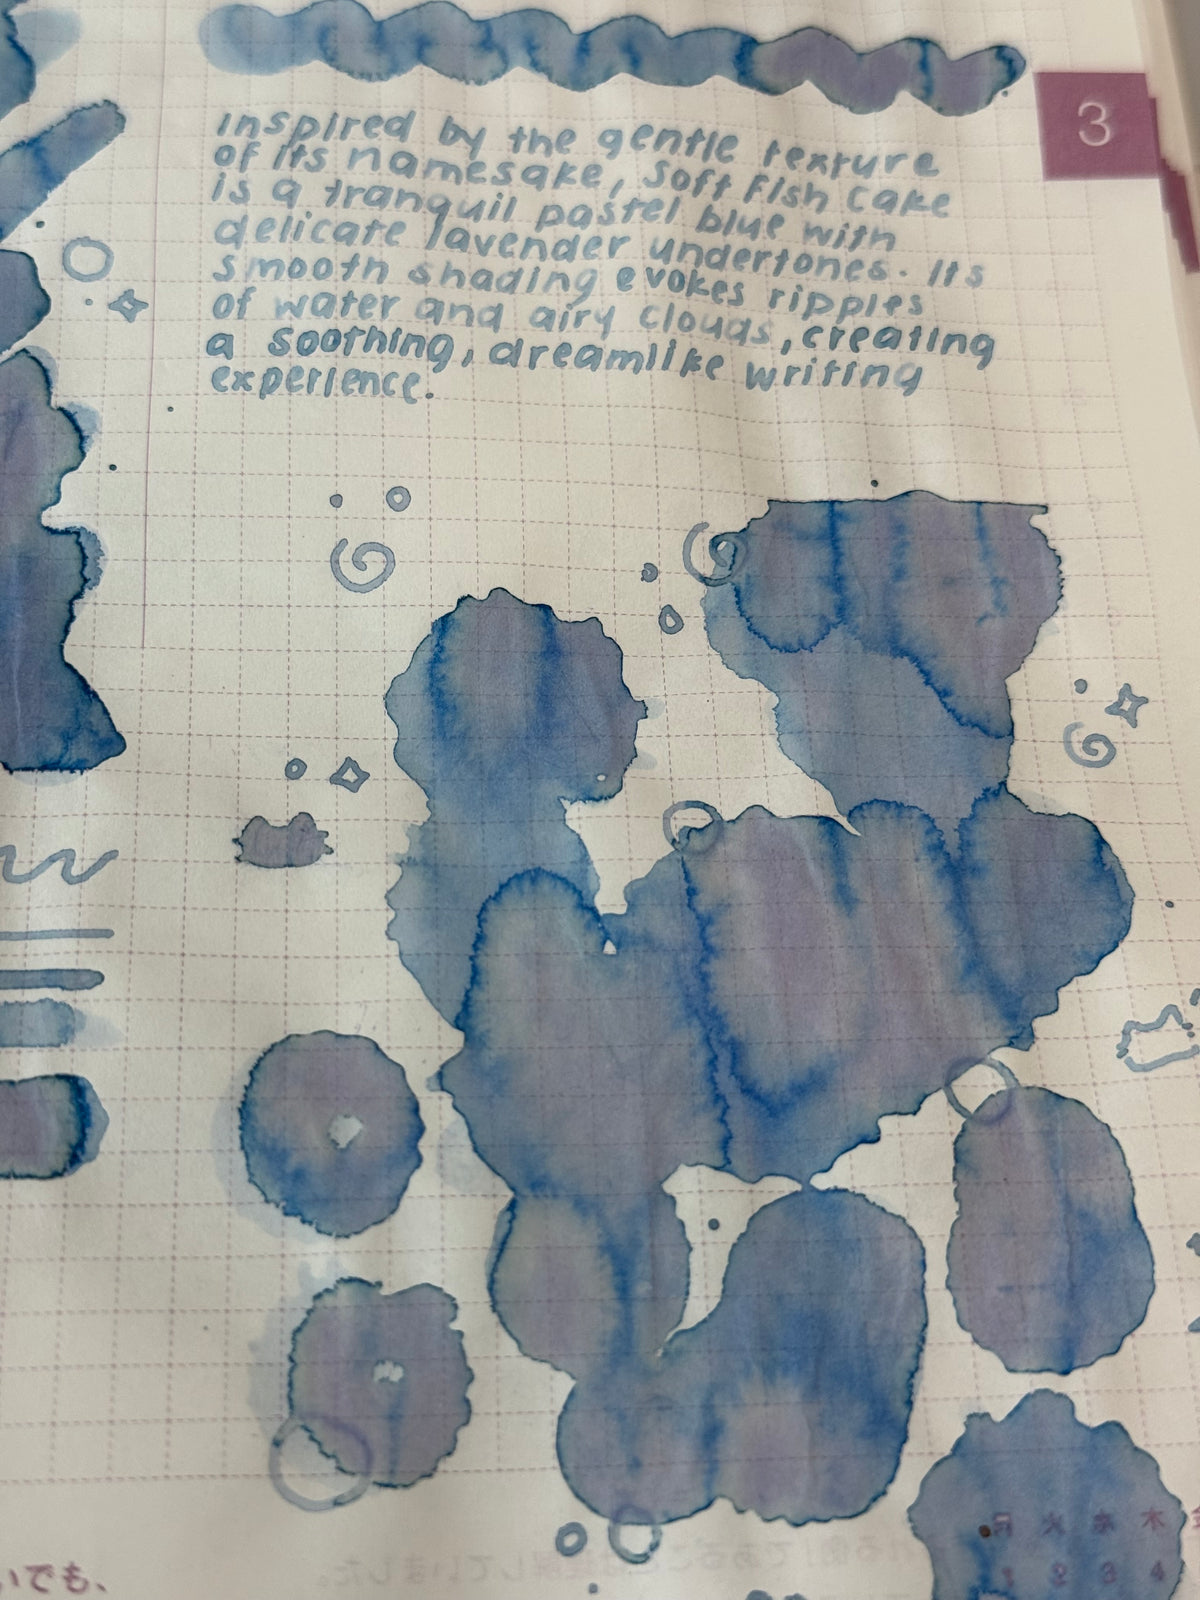 3
inspired by the gentle texture
of its namesake, Soft Fish Cake
is a tranquil pastel blue with
delicate lavender undertones. Its
smooth shading evokes ripples
of water and airy clouds, creating
a soothing, dreamlike writing
experience.
月 火 水 木 金
1 2 3 4
いでも、